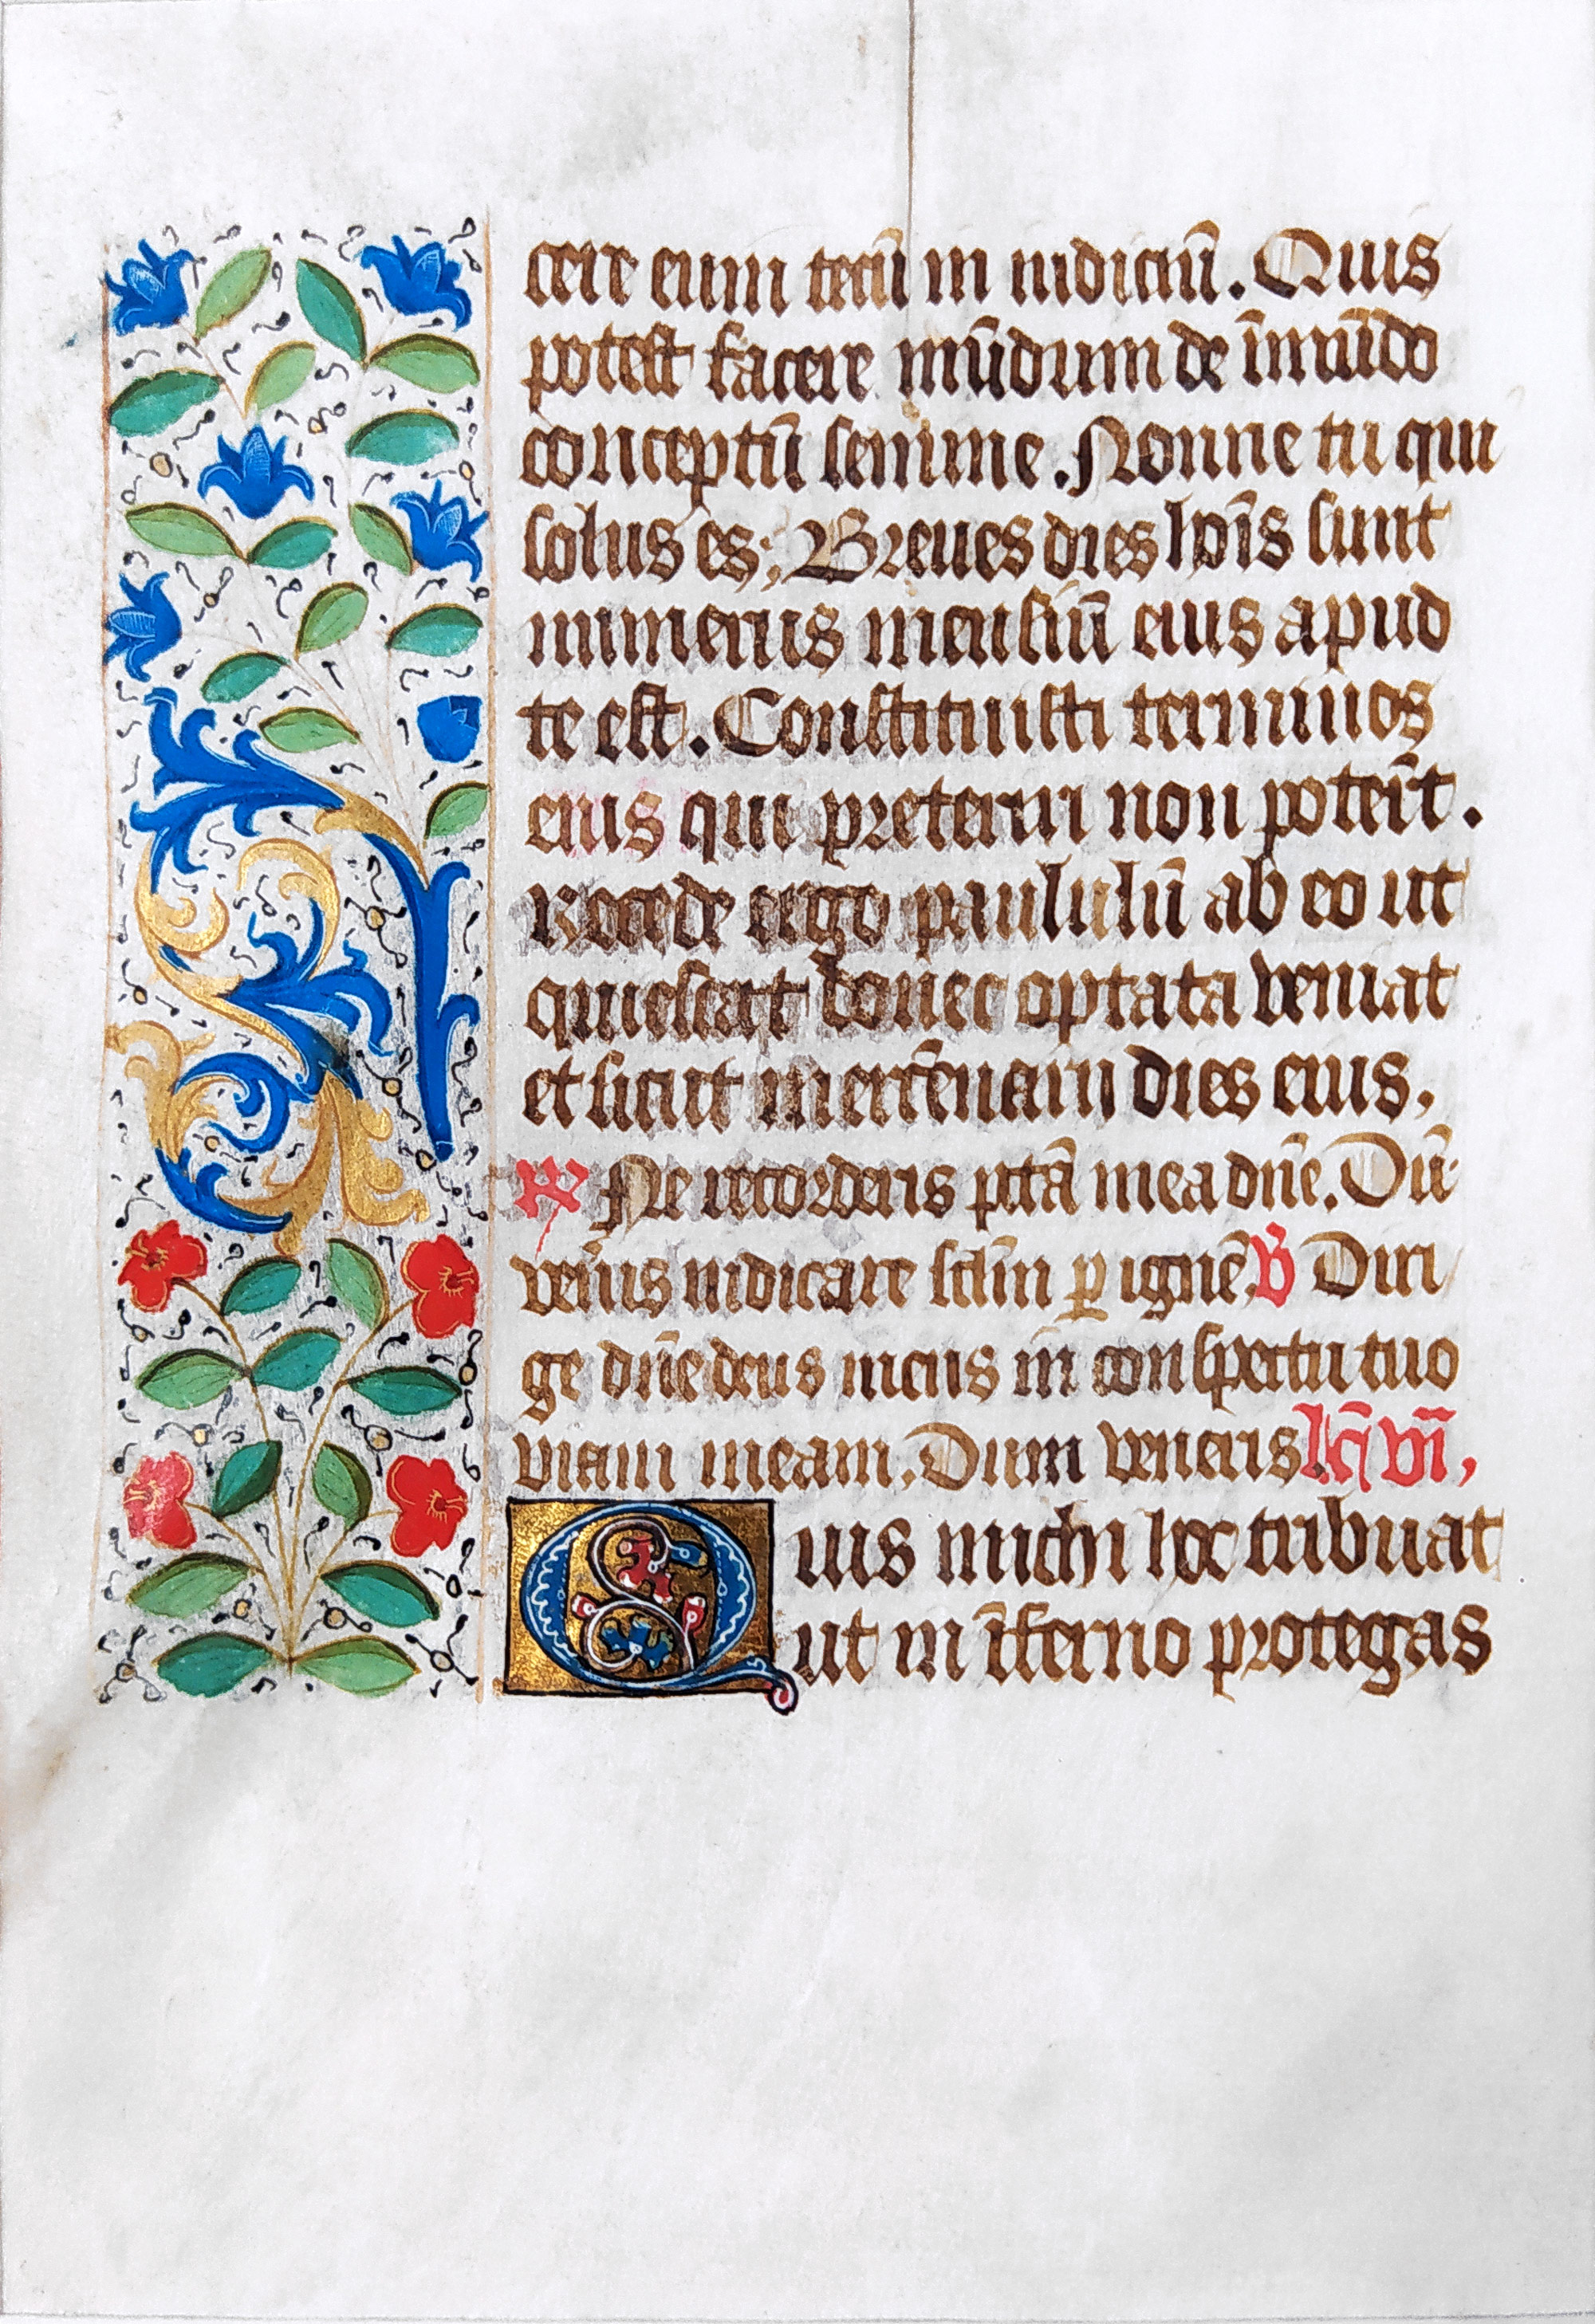 cere eum tecū in iudiciū. Quis
potest facere mūdum de īmūdo
conceptū semine. Nonne tu qui
solus es; Breues dies hoīs sunt
numerus mensiū eius apud
te est. Constituisti terminos
eius qui preteriri non poter̄t.
Recede ergo paululū ab eo ut
quiescat donec optata veniat
et sicut mercēnarij dies eius.
℟ Ne recorderis pctā mea dn̄e. Dū
ven̄is iudicare sclm̄ ꝑ ignē ℣ Diri
ge dn̄e deus meus in conspectu tuo
viam meam. Dum veneris. lc̄ vī,
Quis michi hoc tribuat
ut in īferno protegas